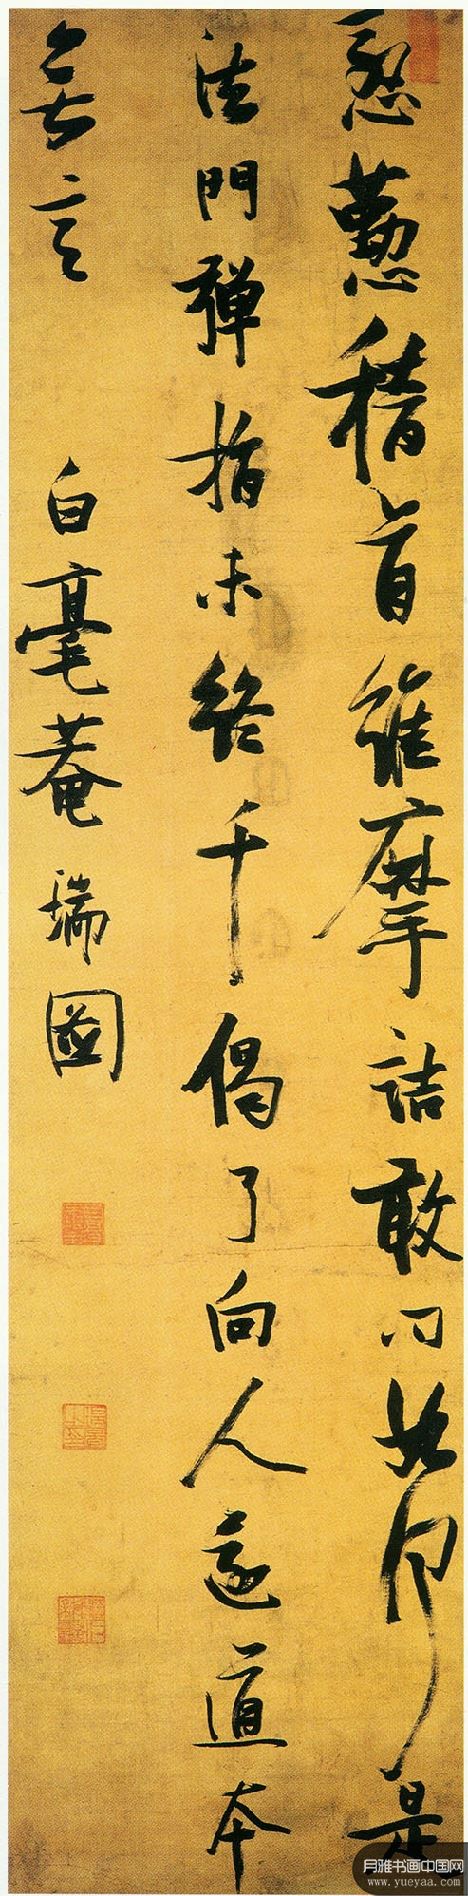 慇懃稽首維摩詰敢問如何是
法門彈指未終千偈了向人還道本
無言 白毫菴瑞圖
月雅书画中国网
www.yueyaa.com